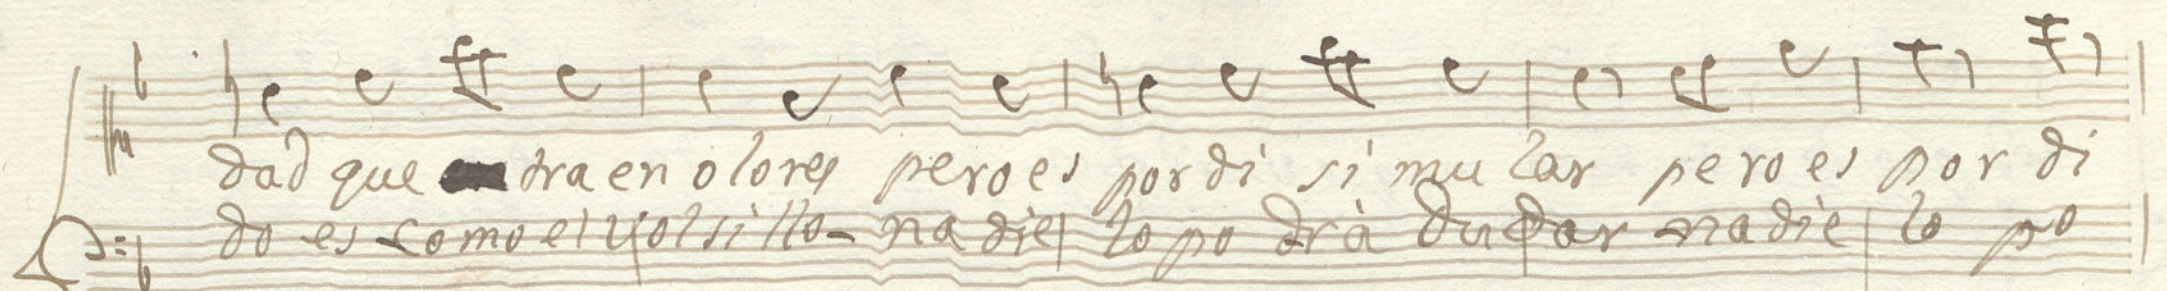 dad que tra en olores pero es por di si mu lar pero es por di
do es como el volsillo na die lo po drà dudar nadie lo po